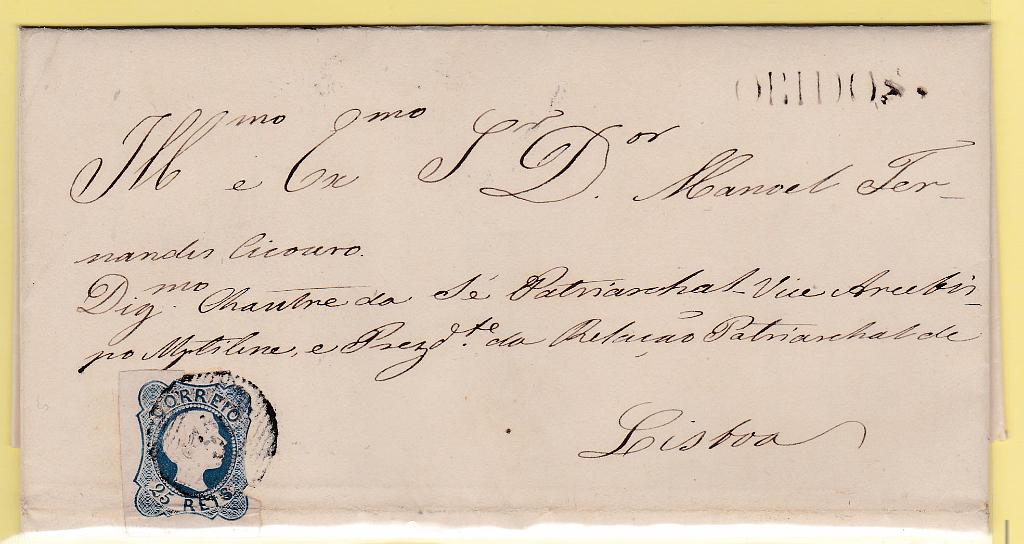 OBIDOS.
Ill^mo e Ex^mo S^r D.^or Manoel Fer-
nandes Cicouro.
Dig^mo. Chantre da Sé Patriarchal Vice Arcebis-
po Mytilene, e Prezd.^te da Relação Patriarchal de
Lisboa
CORREIO
25 REIS